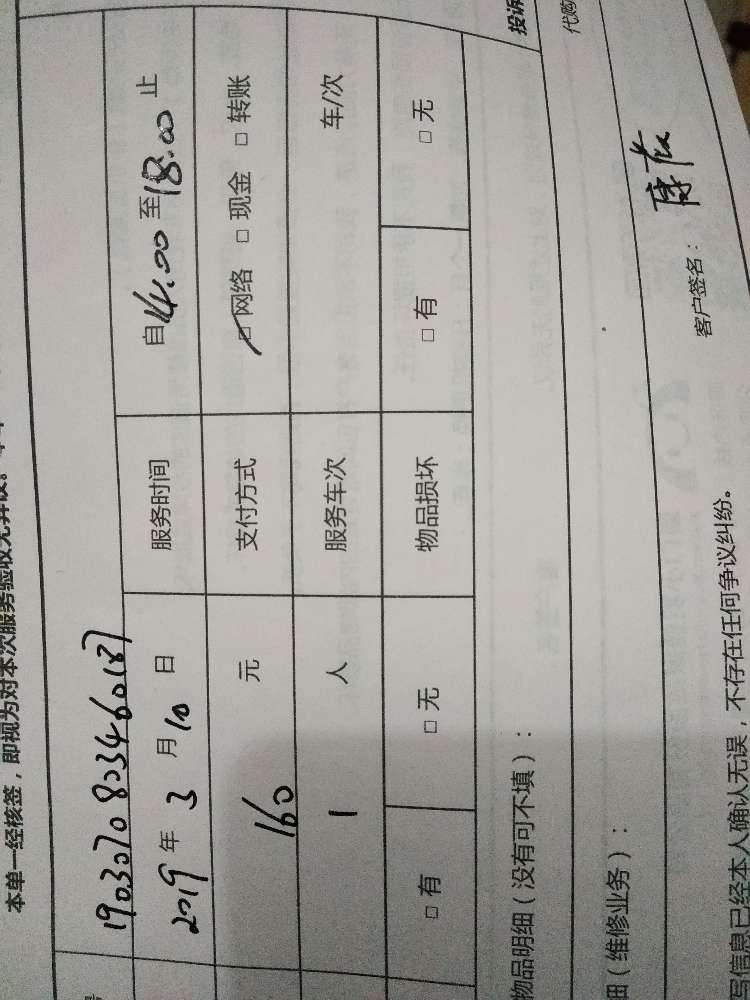 本单一经核签，即视为对本次服务验收无异议。
1903070803460187
2019 年 3 月 10 日 服务时间 自 14.00 至 18.00 止
160 元 支付方式 □ 网络 □ 现金 □ 转账
1 人 服务车次 车/次
□ 有 □ 无 物品损坏 □ 有 □ 无
投诉
物品明细（没有可不填）：
代购
细（维修业务）：
客户签名：
写信息已经本人确认无误，不存在任何争议纠纷。